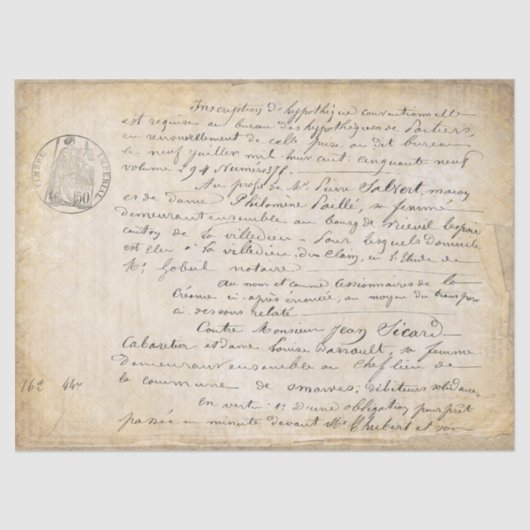 Inscription d'hypothèque conventionnelle
est requise au bureau des hypothèques de Poitiers,
en renouvellement de celle prise au dit bureau
le neuf juillet mil huit cent cinquante neuf
volume 294 Numéro 178.
Au profit de Mr. Pierre Salvert, maçon
et de dame Philomène Paillé, sa femme
demeurant ensemble au bourg de
canton de la villedieu - Pour lesquels Domicile
est élu à La villedieu, du Clain, en l'Etude de
Me. Gobeil notaire
Au nom et comme cessionnaires de la
créance ci-après énoncée, au moyen du transport
ci dessous relaté
Contre Monsieur Jean Sicard
Cabaretier et dame Louise Barrault, sa femme
Demeurant ensemble au Chef lieu de
la commune de smarves; débiteurs solidaires
En vertu 1º D'une obligation, pour prêt
passée en minute devant Me Chubert et son
TIMBRE IMPERIAL
50
162 44